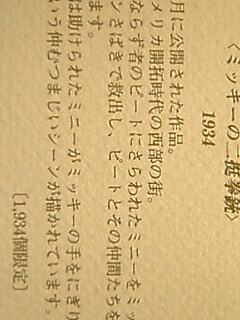 〈ミッキーの二挺拳銃〉
1934
月に公開された作品。
メリカ開拓時代の西部の街。
ならず者のピートにさらわれたミニーをミッ
ンさばきで救出し、ピートとその仲間たちを
ます。
は助けられたミニーがミッキーの手をにぎり
いう仲むつまじいシーンが描かれています。
〔1,934個限定〕